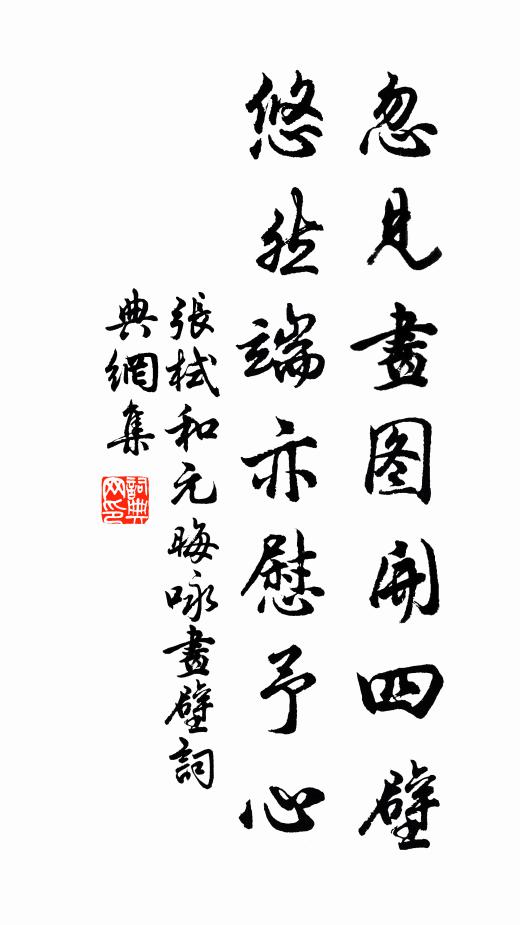 忽見畫图開四壁
悠然端亦慰予心
張栻和元晦咏畫壁詞
典網集
詞典网印